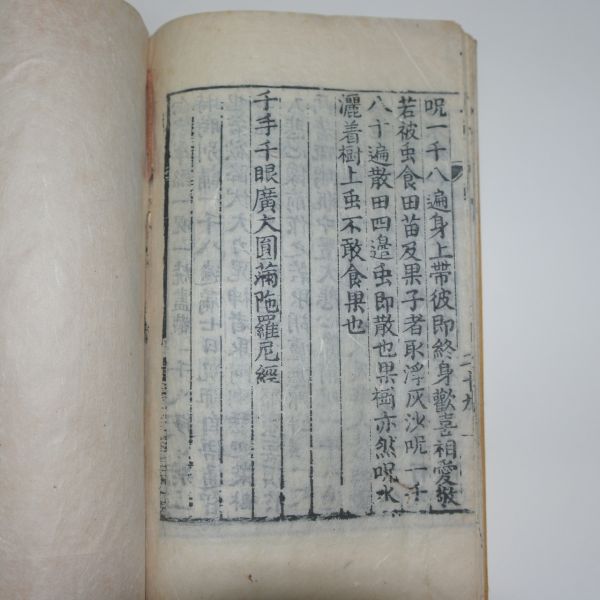 呪一千八遍身上帶彼即終身歡喜相愛敬
若被虫食田苗及果子者取浮灰沙呪一千
八十遍散田四邊虫即散也果樹亦然呪水
灑着樹上虫不敢食果也
千手千眼廣大圓滿陁羅尼經
二十九